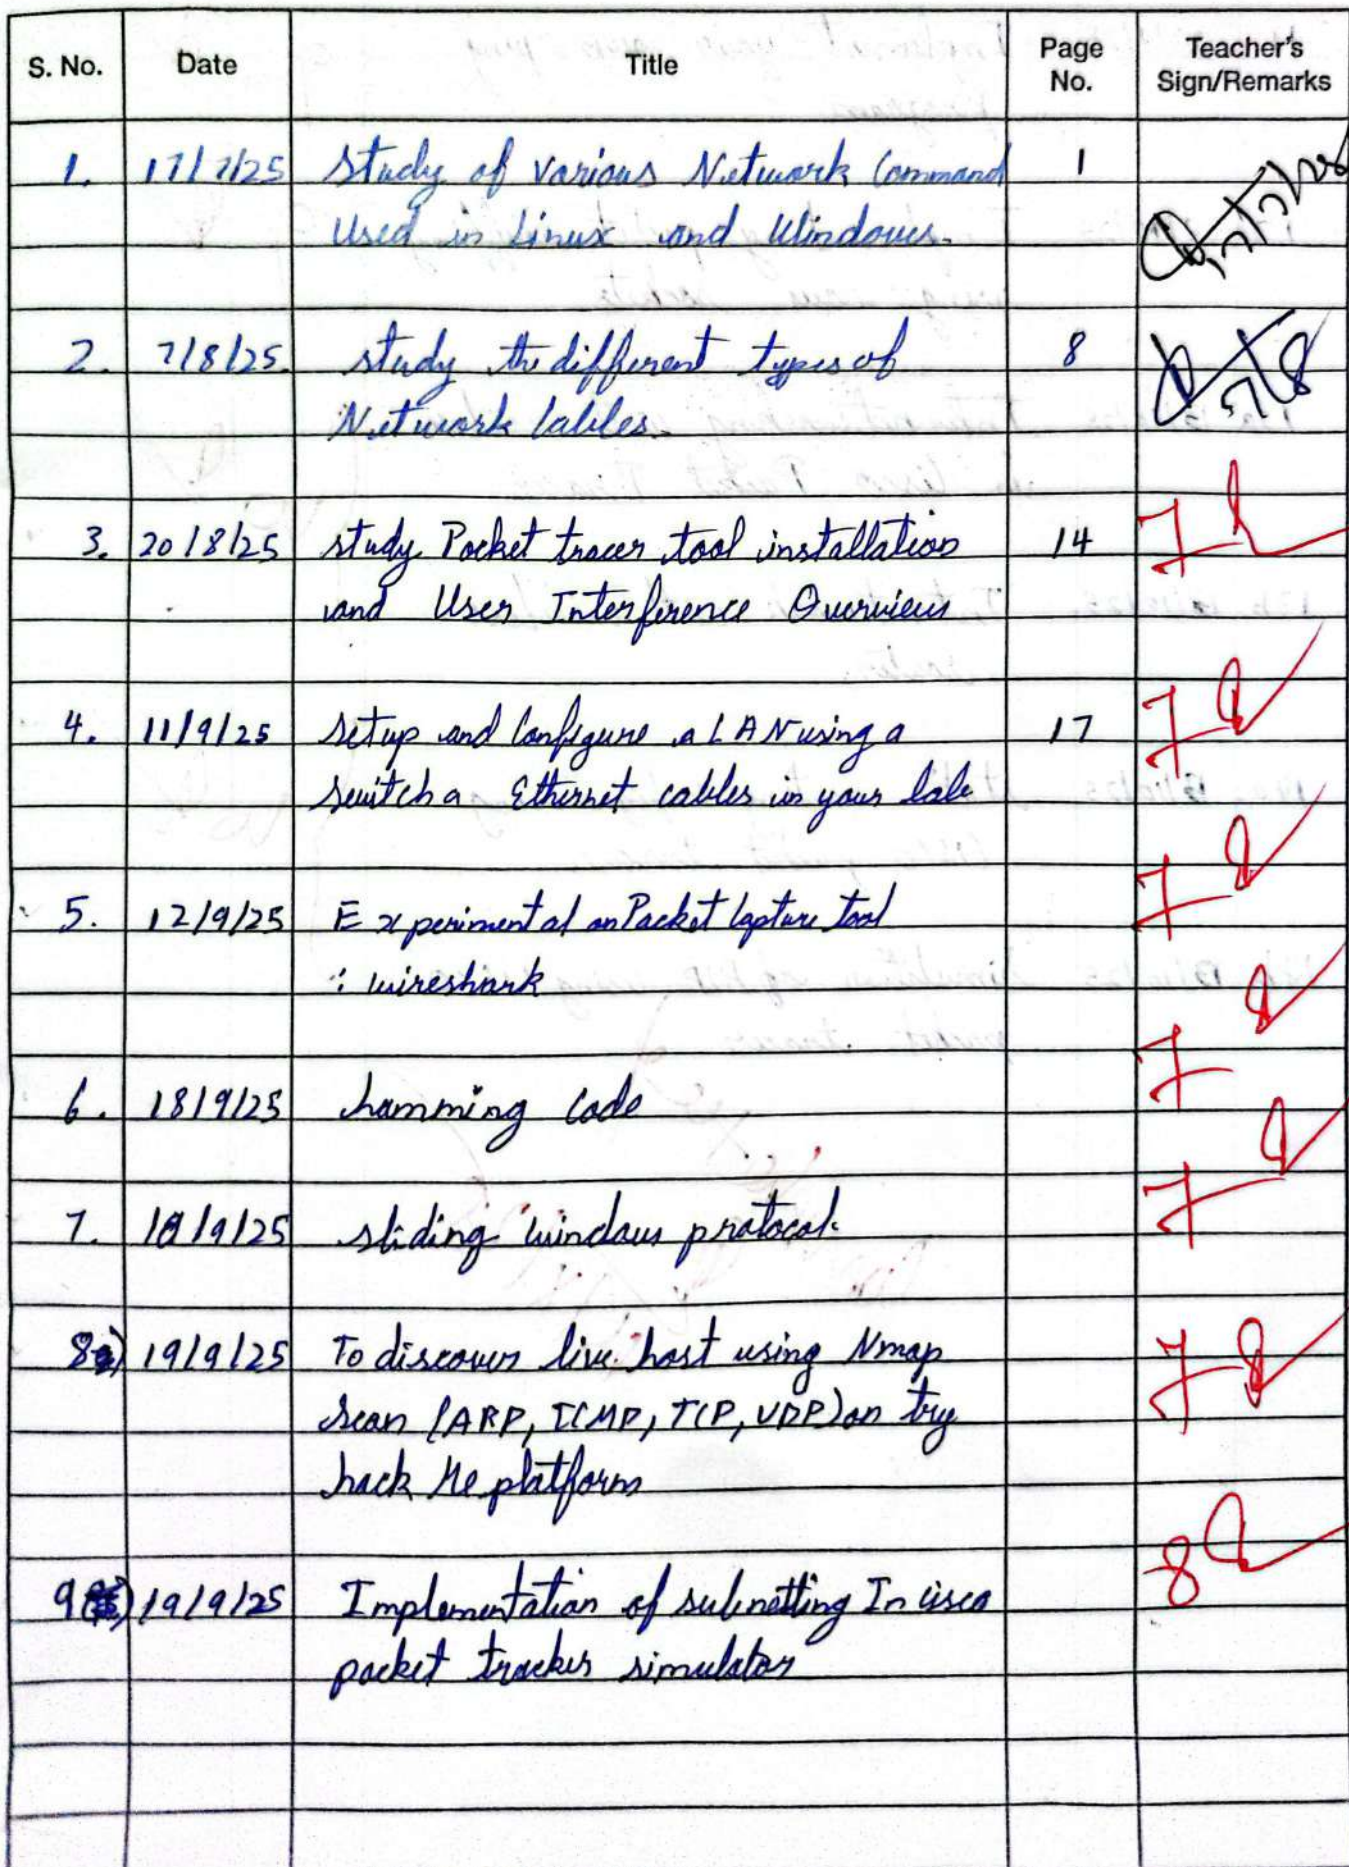 S. No. Date Title Page No. Teacher's Sign/Remarks
1. 17/7/25 Study of Various Network Command 1
Used in Linux and Windows.
2. 7/8/25. study the different types of 8
Network Cables.
3. 20/8/25 study Packet tracer tool installation 14
and User Interference Overview
4. 11/9/25 setup and Configure a LAN using a 17
switch a Ethernet cables in your lab
5. 12/9/25 Experimental on Packet Capture tool
: wireshark
6. 18/9/25 hamming Code
7. 18/9/25 sliding window protocol.
8 19/9/25 To discover live host using Nmap
Scan (ARP, ICMP, TCP, UDP) on try
hack Me platform
9 19/9/25 Implementation of subnetting In cisco
packet tracker simulator